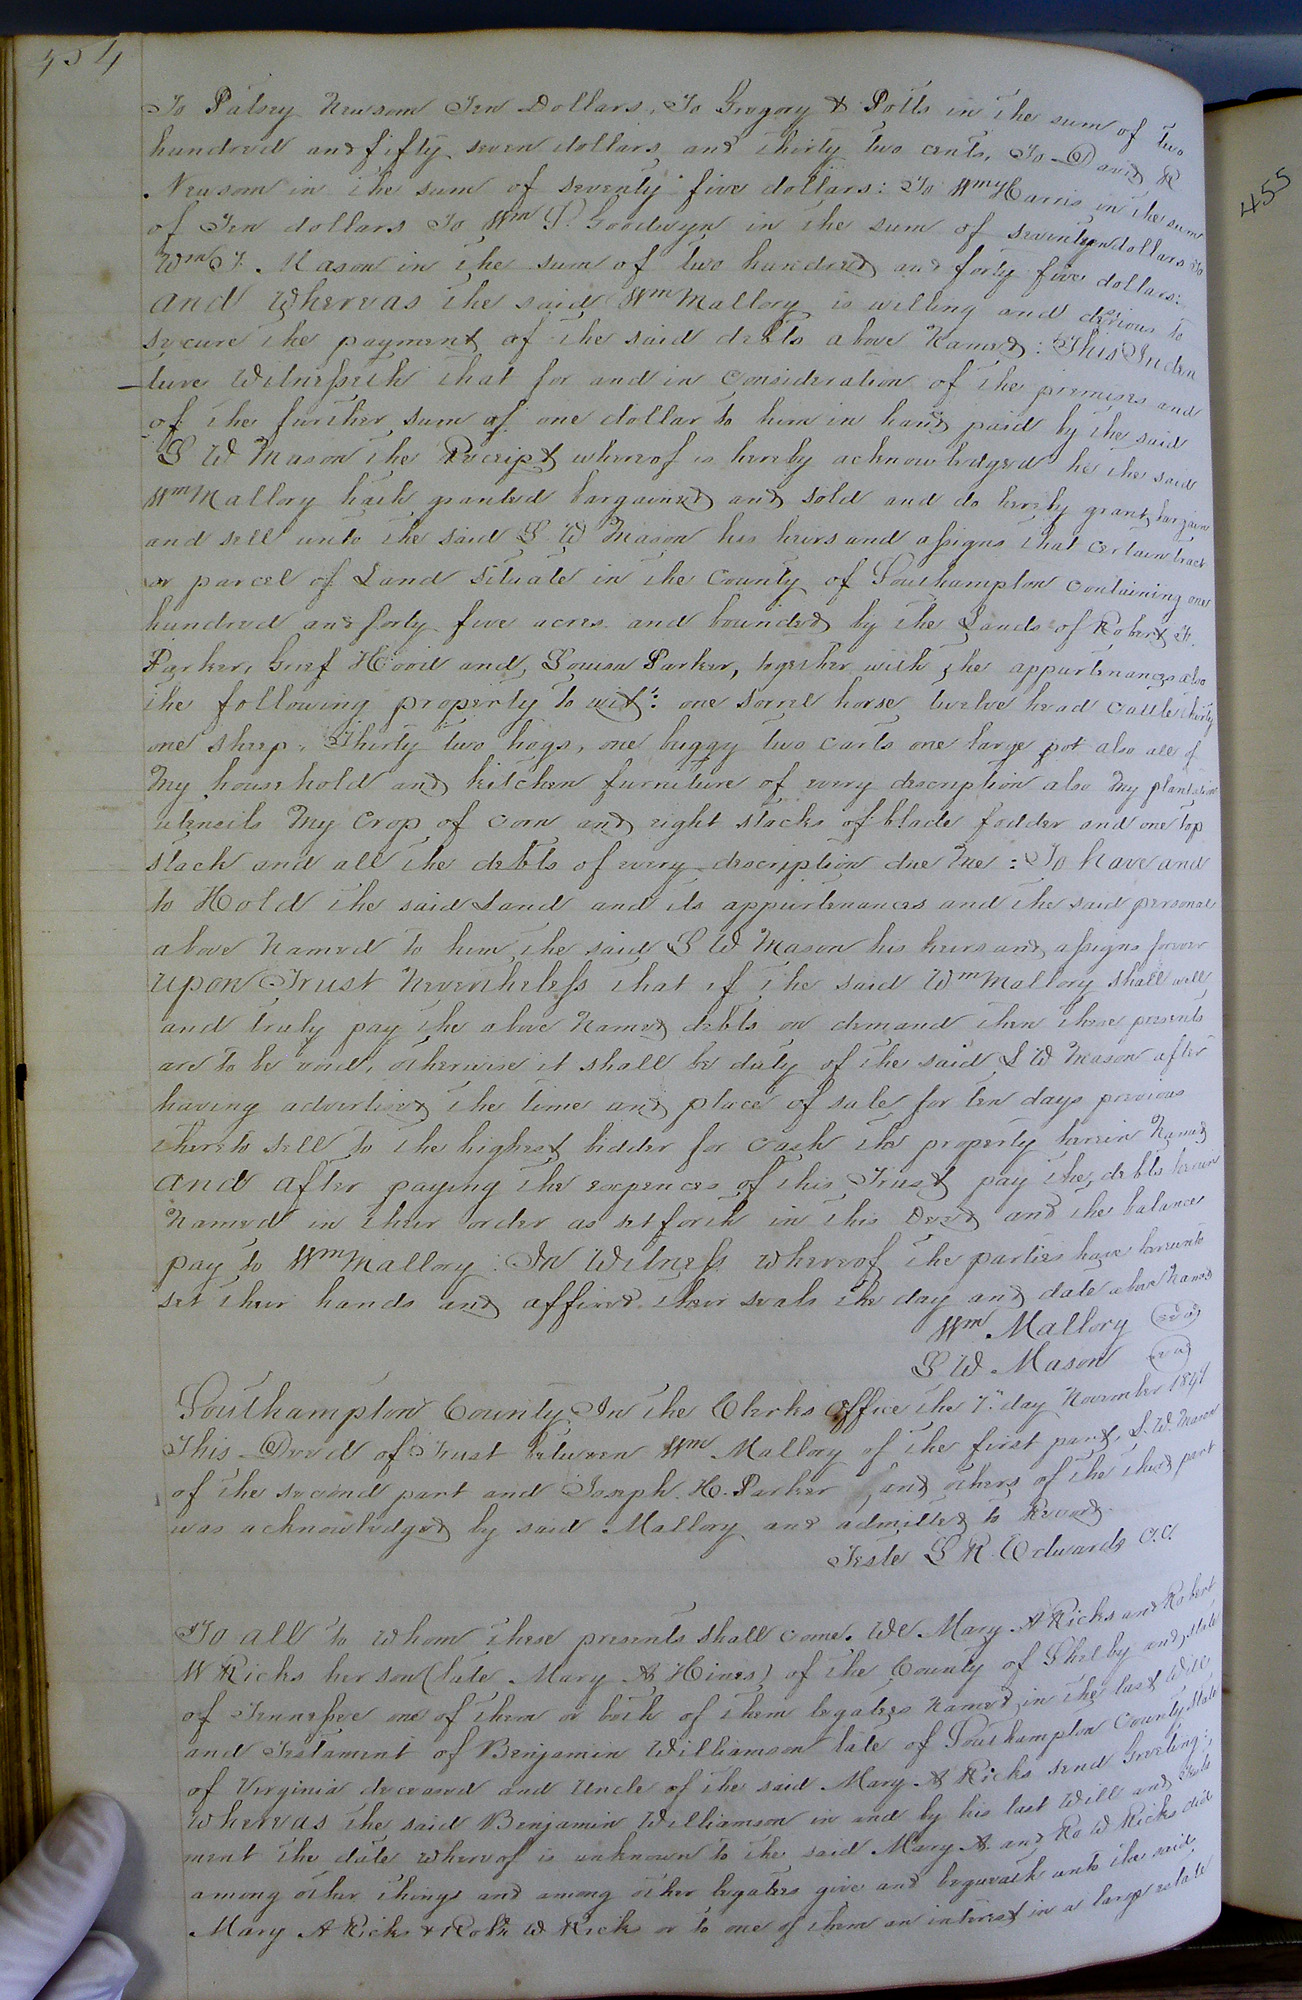 454
To Patsey Newsom Ten Dollars, To Gregory & Potts in the sum of two
hundred and fifty seven dollars and thirty two cents, To David R
Newsom in the sum of seventy five dollars: To Wm Harris in the sum
of Ten dollars To Wm S. Goodwyn in the sum of seventeen dollars To
Wm T. Mason in the sum of two hundred and forty five dollars:
and Whereas the said Wm Mallory is willing and desirous to
secure the payment of the said debts above Named: This Inden
ture Witnesseth that for and in Consideration of the premises and
of the further sum of one dollar to him in hand paid by the said
S W Mason the Receipt whereof is hereby acknowledged he the said
Wm Mallory hath granted bargained and sold and do hereby grant bargain
and sell unto the said S W Mason his heirs and assigns that certain tract
or parcel of Land situate in the County of Southampton Containing one
hundred and forty five acres and bounded by the Lands of Robert H.
Parker, and Louisa Parker, together with the appurtenances also
the following property to wit: one sorrel horse twelve head cattle thirty
one sheep, Thirty two hogs, one buggy two carts one large pot also all of
My household and kitchen furniture of every description also My plantation
utensils My Crop of corn and eight stacks of blade fodder and one top
stack and all the debts of every description due Me: To have and
to Hold the said Land and its appurtenances and the said personal
above Named to him the said S W Mason his heirs and assigns forever
upon Trust Nevertheless that if the said Wm Mallory shall well
and truly pay the above Named debts on demand then these presents
are to be void, otherwise it shall be duty of the said S W Mason after
having advertised the time and place of sale for ten days previous
thereto sell to the highest bidder for cash the property herein Named
and after paying the expences of this Trust pay the debts herein
Named in their order as set forth in this Deed and the balance
pay to Wm Mallory: In Witness whereof the parties have hereunto
set their hands and affixed their seals the day and date above Named
Wm Mallory seal
S W Mason seal
Southampton County In the Clerks Office the 7" day November 184
This Deed of Trust between Wm Mallory of the first part, S. W. Mason
of the second part and Joseph H. Parker and others of the third part
was acknowledged by said Mallory and admitted to Record
Teste L R Edwards C.C.
To all to whom these presents shall come. We Mary A Ricks and Robert
W Ricks her son (late Mary A Hines) of the County of Shelby and state
of Tennessee one of them or both of them legatees Named in the last Will
and Testament of Benjamin Williamson late of Southampton County State
of Virginia deceased and Uncle of the said Mary A Ricks send Greeting:
Whereas the said Benjamin Williamson in and by his last Will and Testa
ment the date whereof is unknown to the said Mary A. and Ro W Ricks did
among other things and among other legatees give and bequeath unto the said
Mary A Ricks & Robt W Ricks or to one of them an interest in a large estate
455